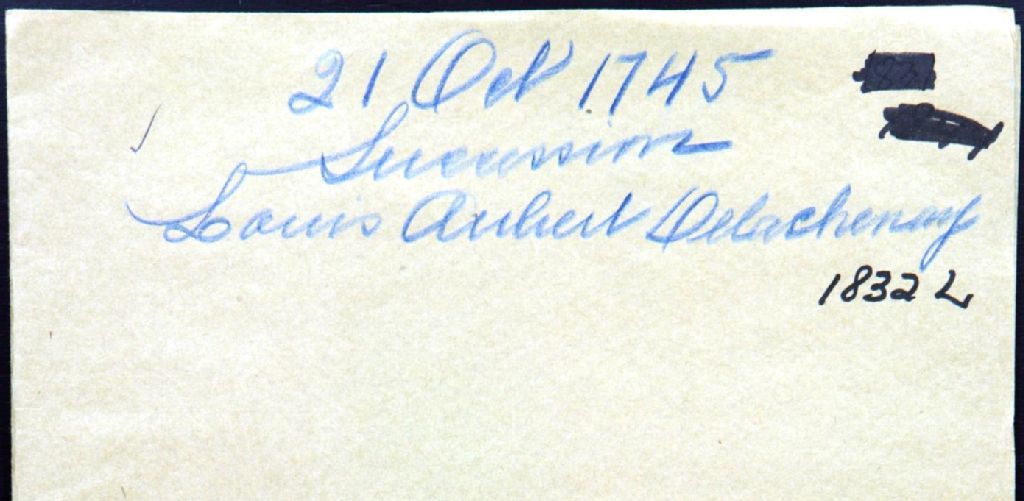 21 Oct 1745
Succession
Louis Aubert Delachenay
1832 L